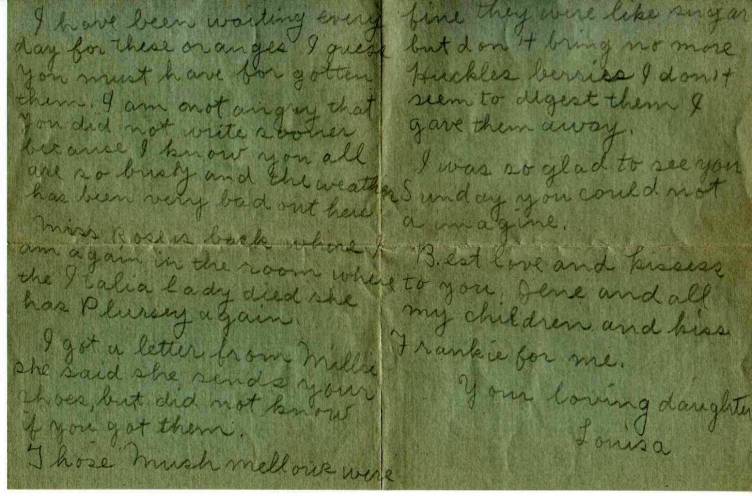 I have been waiting every
day for these oranges I guess
you must have for gotten
them. I am not angry that
you did not write sooner
because I know you all
are so busy and the weather
has been very bad out here
Miss Rose is back where I
am again in the room where
the Italia lady died she
has Plursey again.
I got a letter from Millie
she said she sends your
shoes, but did not know
if you got them.
Those Mush mellows were
fine they were like sugar
but don't bring no more
Huckles berries I don't
seem to digest them I
gave them away.
I was so glad to see you
Sunday you could not
a imagine.
Best love and kissess
to you Jene and all
my children and kiss
Frankie for me.
Your loving daughter
Louisa